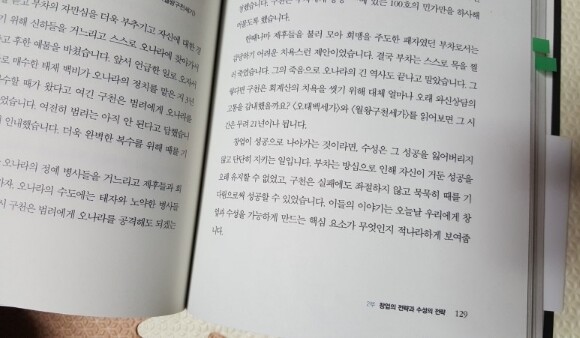 를 펴고 부차의 자만심을 더욱 부추기고 자신에 대한 경
기 위해 신하들을 거느리고 스스로 오나라에 찾아가서
고 후한 예물을 바쳤습니다. 앞서 언급한 일로 오자서
로 매수한 태재 백비가 오나라의 정치를 맡은 지 3년
복수할 때가 왔다고 여긴 구천은 범려에게 오나라를
었습니다. 여전히 범려는 아직 안 된다고 답했습니
인내했습니다. 더욱 완벽한 복수를 위해 때를 기
오나라의 정예 병사들을 거느리고 제후들과 회
자. 오나라의 수도에는 태자와 노약한 병사들
시 구천은 범려에게 오나라를 공격해도 되겠는
있는 100호의 민가만을 하사해
머물도록 했습니다.
한때나마 제후들을 불러 모아 회맹을 주도한 패자였던 부차로서는
감당하기 어려운 치욕스런 제안이었습니다. 결국 부차는 스스로 목을 찔
러 죽었습니다. 그의 죽음으로 오나라의 긴 역사도 끝나고 말았습니다. 그
렇다면 구천은 회계산의 치욕을 씻기 위해 대체 얼마나 오래 와신상담의
고통을 감내했을까요? 〈오태백세가〉와 〈월왕구천세가〉를 읽어보면 그 시
간은 무려 21년이나 됩니다.
창업이 성공으로 나아가는 것이라면, 수성은 그 성공을 잃어버리지
않고 단단히 지키는 일입니다. 부차는 방심으로 인해 자신이 거둔 성공을
오래 유지할 수 없었고, 구천은 실패에도 좌절하지 않고 묵묵히 때를 기
다림으로써 성공할 수 있었습니다. 이들의 이야기는 오늘날 우리에게 창
업과 수성을 가능하게 만드는 핵심 요소가 무엇인지 적나라하게 보여줍
니다.
창업의 전략과 수성의 전략 129